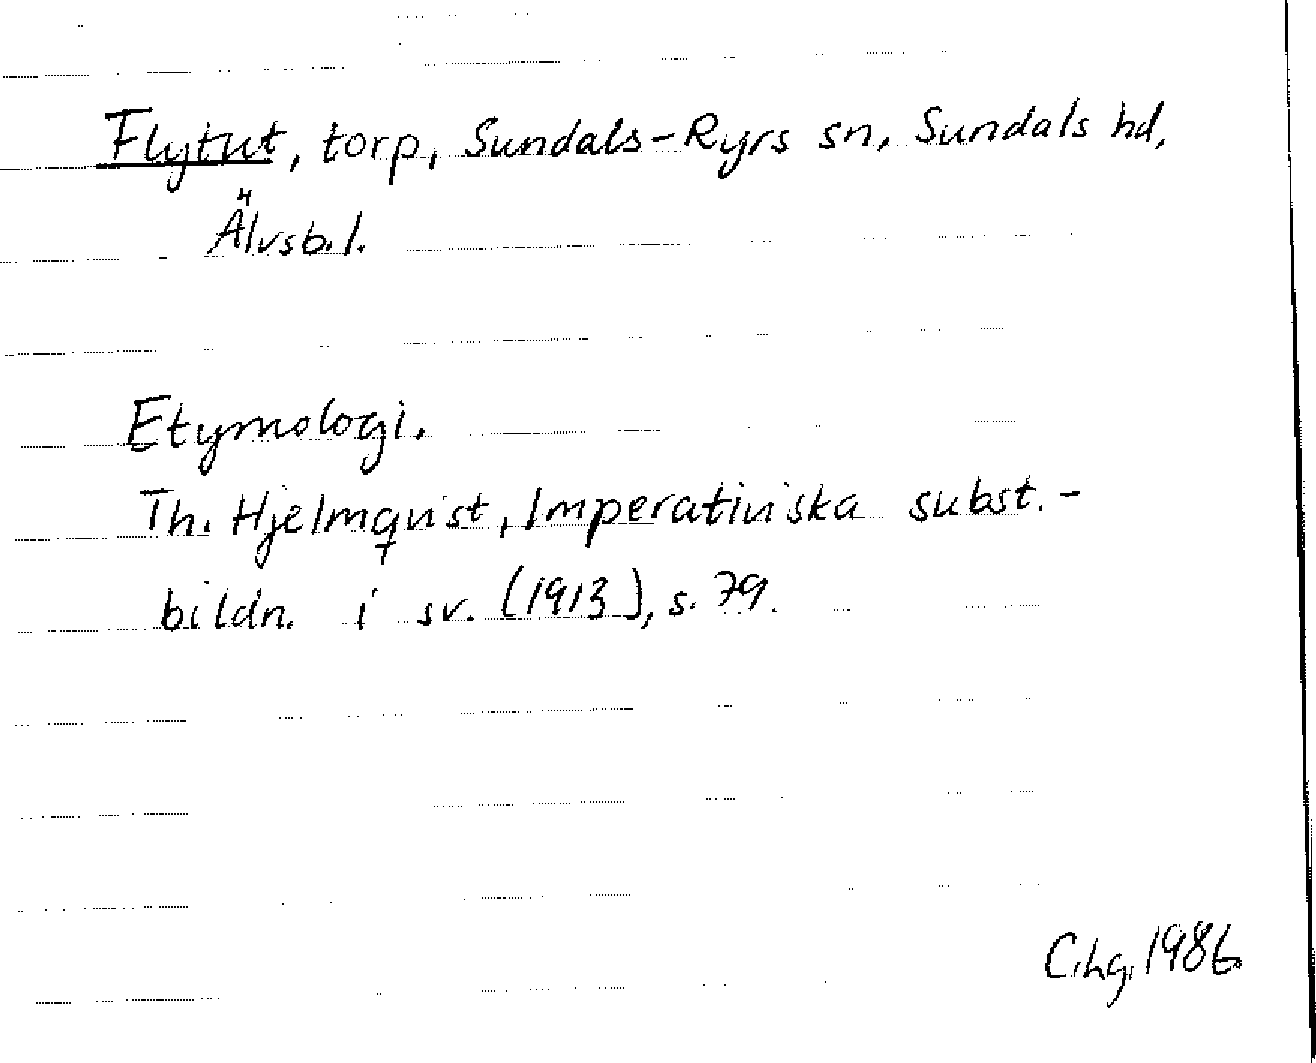 Flytut, torp, Sundals-Ryrs sn, Sundals hd,
Älvsb.l.
Etymologi.
Th. Hjelmqvist, Imperativiska subst.-
bildn. i sv. (1913), s. 79.
C.hg. 1986